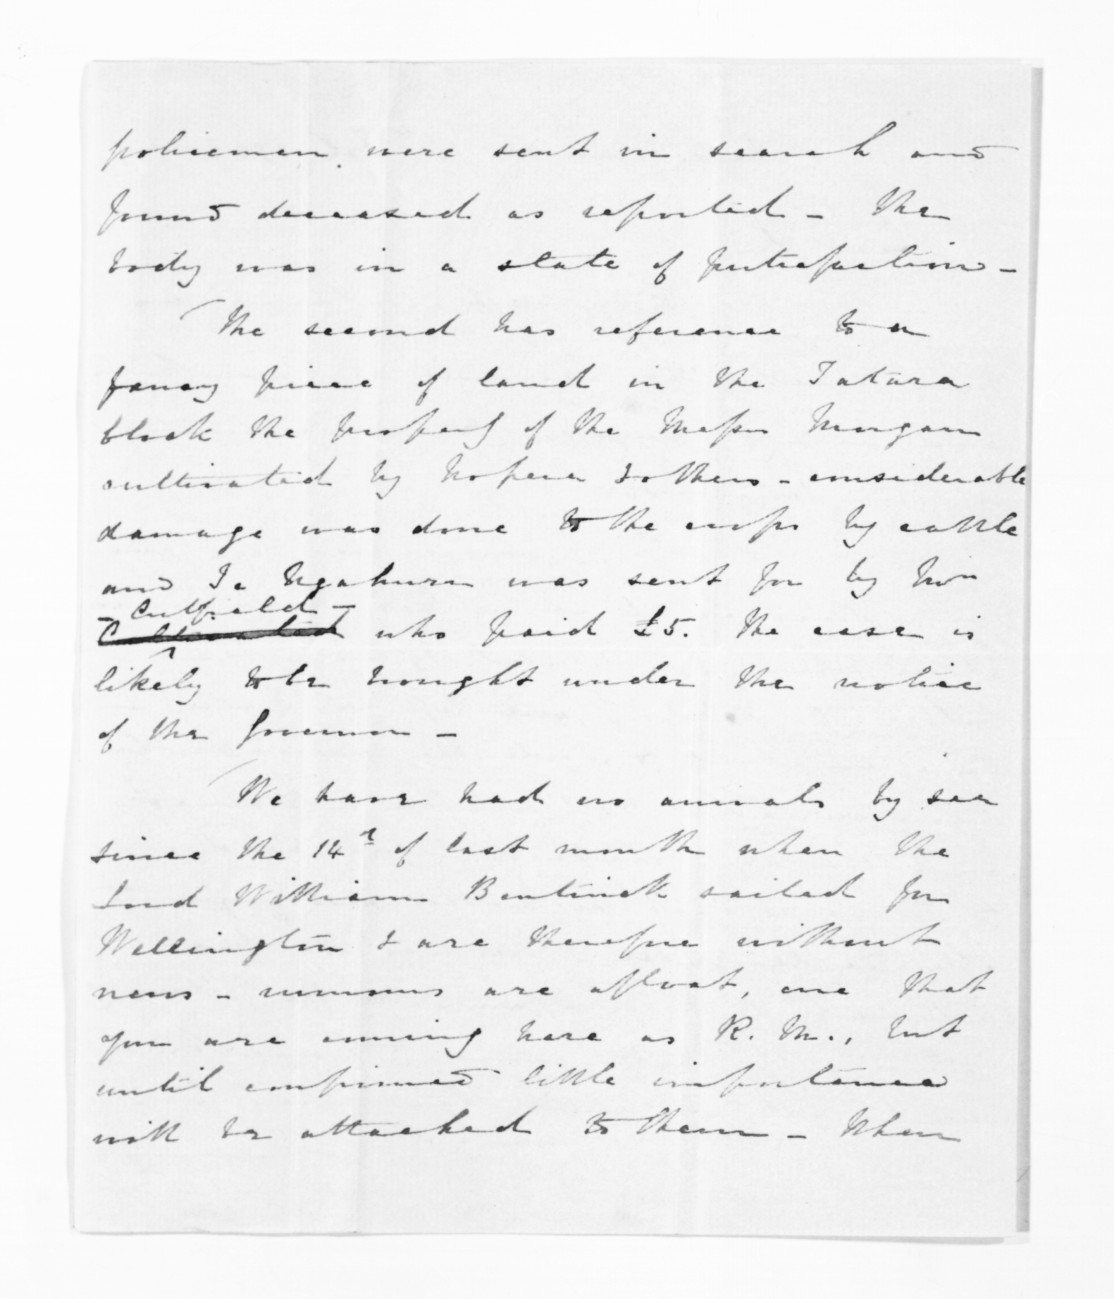 policemen were sent in search and
found deceased as reported - The
body was in a state of putrefaction -
The second has reference to a
fancy piece of land in the Tutura
block the property of the Messrs Morgan
cultivated by Hopera & others - considerable
damage was done to the crops by cattle
and Te Ngahuru was sent for by
Cutfield -
who paid £5. The case is
likely to be brought under the notice
of the Governor -
We have had no arrivals by sea
since the 14th of last month when the
Lord William Bentinck sailed for
Wellington & are therefore without
news - rumours are afloat, one that
you are coming here as R. M., but
until confirmed little importance
will be attached to them - When